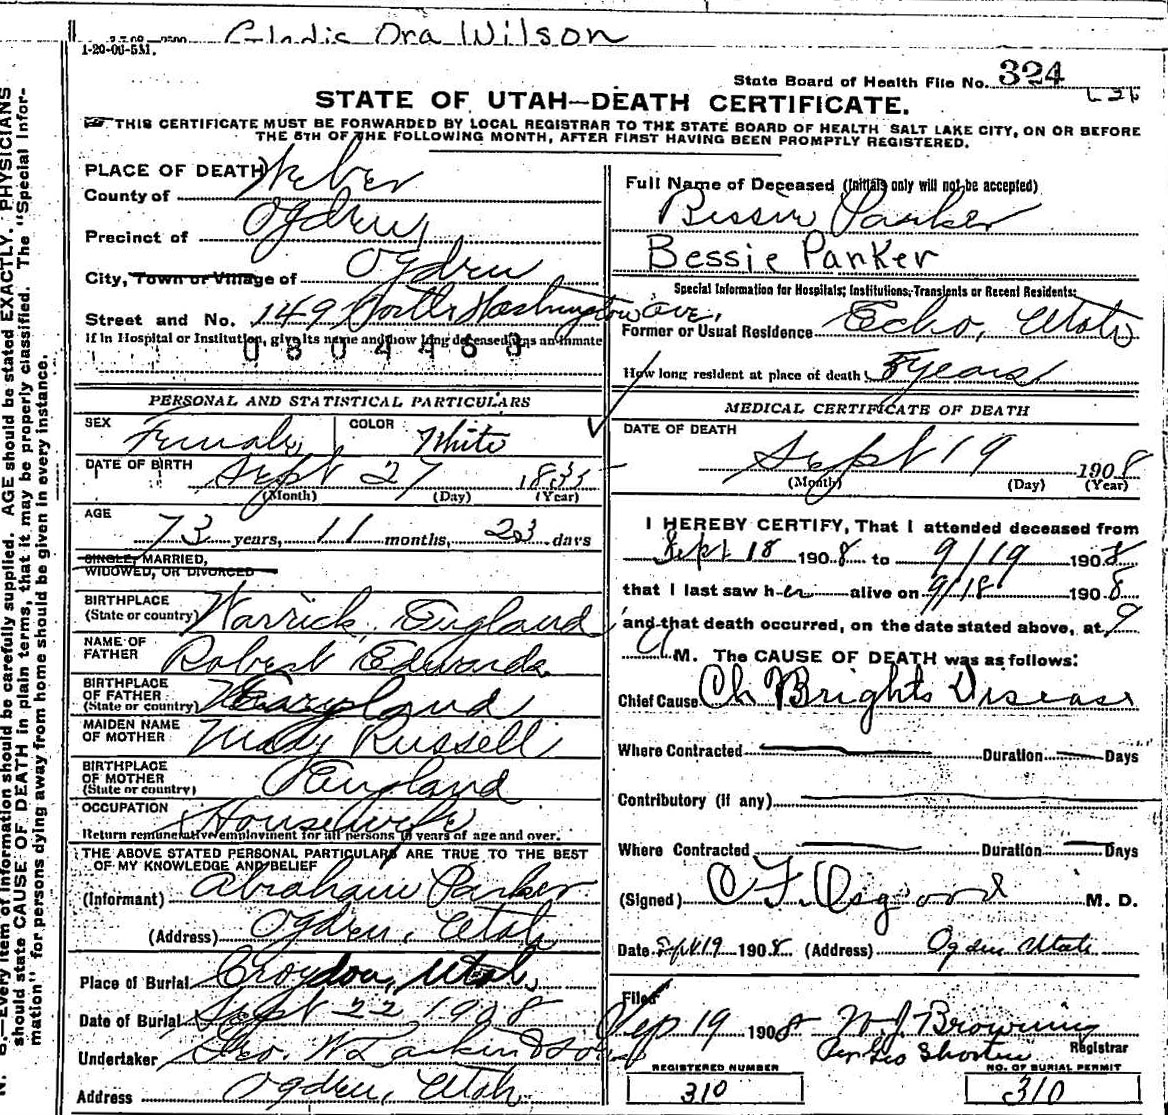 Gladis Ora Wilson
1-20-06-5M.
State Board of Health File No. 324
STATE OF UTAH—DEATH CERTIFICATE.
THIS CERTIFICATE MUST BE FORWARDED BY LOCAL REGISTRAR TO THE STATE BOARD OF HEALTH SALT LAKE CITY, ON OR BEFORE
THE 5TH OF THE FOLLOWING MONTH, AFTER FIRST HAVING BEEN PROMPTLY REGISTERED.
PLACE OF DEATH
County of Weber
Precinct of Ogden,
City, Town or Village of Ogden
Street and No. 149 North Washington ave,
If in Hospital or Institution, give its name and how long deceased was an inmate
0804468
Full Name of Deceased (Initials only will not be accepted)
Bessie Parker
Bessie Parker
Special Information for Hospitals, Institutions, Transients or Recent Residents:
Former or Usual Residence Echo, Utah
How long resident at place of death years
PERSONAL AND STATISTICAL PARTICULARS
SEX Female
COLOR White
DATE OF BIRTH Sept 27 1835
(Month) (Day) (Year)
AGE 73 years, 11 months, 23 days
SINGLE, MARRIED,
WIDOWED, OR DIVORCED
BIRTHPLACE
(State or country) Warrick, England
NAME OF
FATHER Robert Edwards
BIRTHPLACE
OF FATHER
(State or country)
MAIDEN NAME
OF MOTHER Mary Russell
BIRTHPLACE
OF MOTHER
(State or country) England
OCCUPATION Housewife
Return remunerative employment for all persons 10 years of age and over.
THE ABOVE STATED PERSONAL PARTICULARS ARE TRUE TO THE BEST
OF MY KNOWLEDGE AND BELIEF
(Informant) Abraham Parker
(Address) Ogden, Utah
Place of Burial Croydon, Utah,
Date of Burial Sept 22 1908
Undertaker Geo. W Larkin & Sons
Address Ogden, Utah
MEDICAL CERTIFICATE OF DEATH
DATE OF DEATH
Sept 19 1908
(Month) (Day) (Year)
I HEREBY CERTIFY, That I attended deceased from
Sept 18 1908 to 9/19 1908
that I last saw her alive on 9/18 1908
and that death occurred, on the date stated above, at 9
A M. The CAUSE OF DEATH was as follows:
Chief Cause Ch Brights Disease
Where Contracted Duration Days
Contributory (if any)
Where Contracted Duration Days
(Signed) O F. Osgood M. D.
Date Sept 19 1908 (Address) Ogden Utah
Filed
Sep 19 1908 W J Browning
Per Geo Shorten Registrar
REGISTERED NUMBER
310
NO. OF BURIAL PERMIT
310
N. B.—Every item of information should be carefully supplied. AGE should be stated EXACTLY. PHYSICIANS
should state CAUSE OF DEATH in plain terms, that it may be properly classified. The "Special Infor-
mation" for persons dying away from home should be given in every instance.